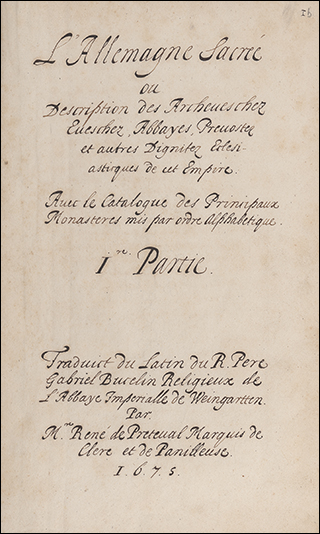 16
L'Allemagne Sacreé
ou
Description des Archeueschez
Eueschez, Abbayes, Preuostez
et autres Dignitez Eclesi-
astirques de cet Empire.
Auec le Catalogue des Prinsipaux
Monasteres mis par ordre Alphabetique.
I.re Partie.
Traduict du Latin du R. Pere
Gabriel Bucelin Religieux de
L'Abbaye Imperialle de Weingartten.
Par.
M.re René de Preteval Marquis de
Clere et de Panilleuse.
1.6.7.5.